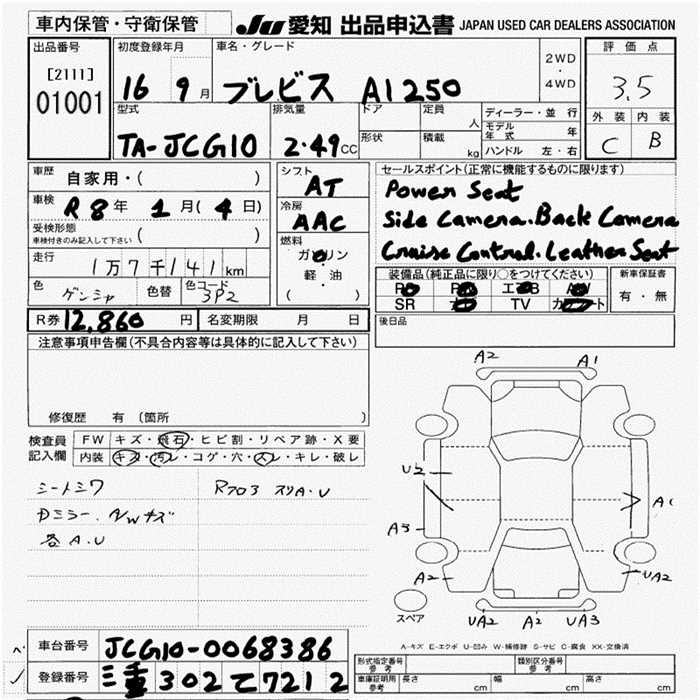 車内保管・守衛保管 JU 愛知 出品申込書 JAPAN USED CAR DEALERS ASSOCIATION
出品番号 初度登録年月 車名・グレード 評価点
[2111] 01001 16 9月 ブレビス Ai250 2WD・4WD 3.5
型式 排気量 ドア 定員 人 ディーラー・並行 外装 内装
TA-JCG10 2.49CC 形状 積載 kg モデル年式 年 C B
ハンドル 左・右
車歴 自家用・( ) シフト AT セールスポイント(正常に機能するものに限ります)
車検 R8年 1月(4日) 冷房 AAC Power Seat
受検形態 車検付きのみ記入して下さい ( ) 燃料 Side Camera.Back Camera
走行 1万7千141km ガソリン・軽・油 ( ) Cruise Control.Leather Seat
色 ゲンシャ 色替 色コード 3P2 装備品(純正品に限り○をつけてください) 新車保証書
SR TV 有・無
R券 12,860円 名変期限 月 日 後日品
注意事項申告欄(不具合内容等は具体的に記入して下さい)
修復歴 有(箇所
検査員記入欄 FW キズ・飛石・ヒビ割・リペア跡・X要
内装 キズ・汚レ・コゲ・穴・スレ・キレ・破レ
シートシワ R703 スリA.U
Dミラー.N/Wキズ
各A.U
A2 A1
U2 A1
A3
A2 UA2
スペア
UA2 A2 UA3
A-キズ E-エクボ U-凹み W-補修跡 S-サビ C-腐食 XX-交換済
車台番号 JCG10-0068386
登録番号 三重302て7212
形式指定番号 参考 類別区分番号 参考
車庫証明用 参考 長さ cm 幅 cm 高さ cm